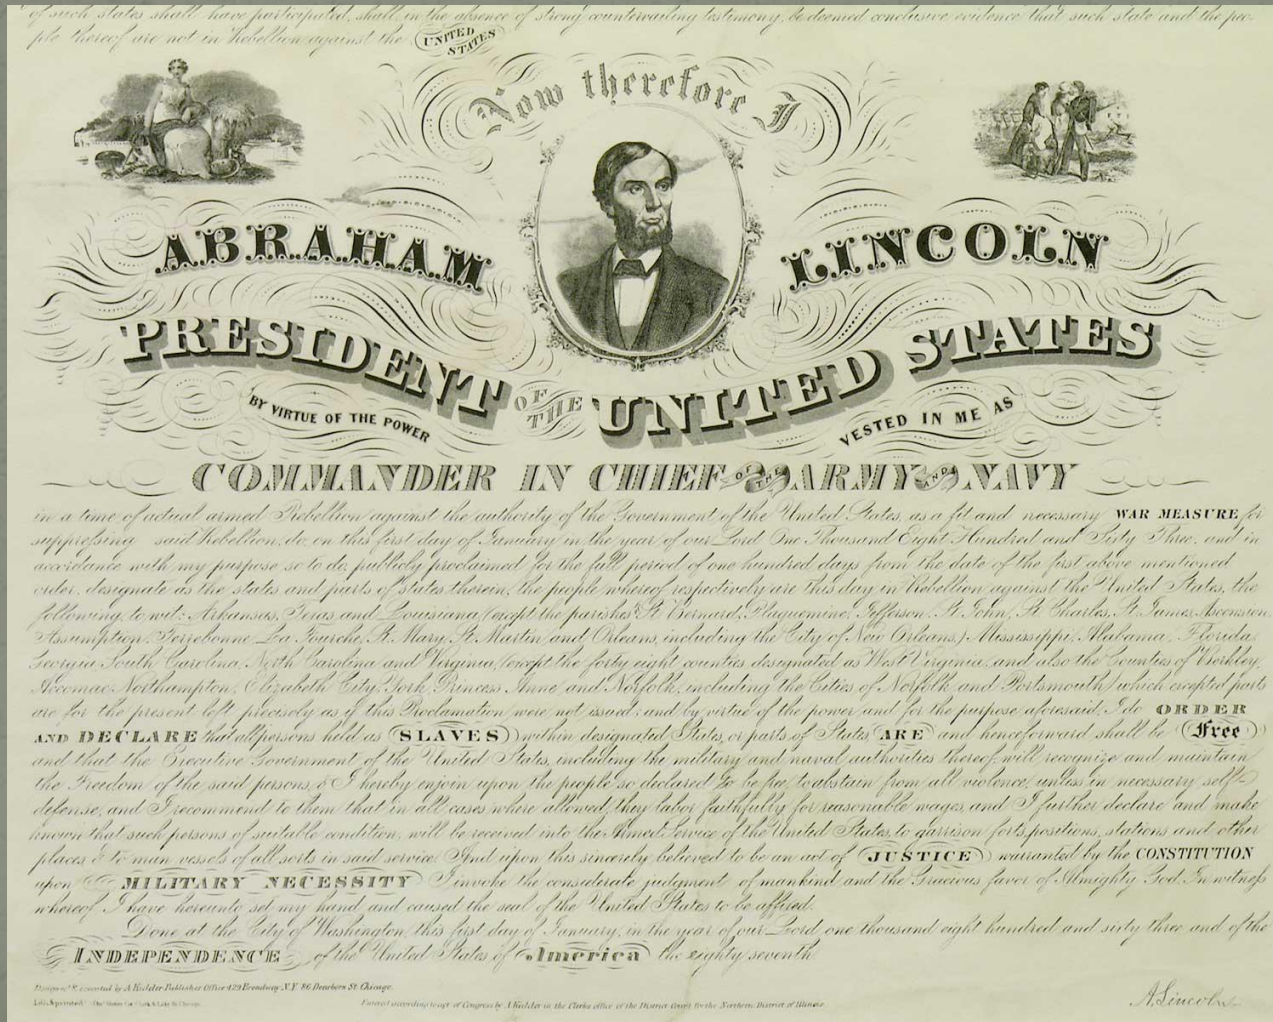 of such states shall have participated, shall, in the absence of strong countervailing testimony, be deemed conclusive evidence that such state and the peo-
ple thereof are not in Rebellion against the UNITED STATES
Now therefore I
ABRAHAM LINCOLN
PRESIDENT OF THE UNITED STATES
BY VIRTUE OF THE POWER VESTED IN ME AS
COMMANDER IN CHIEF OF THE ARMY AND NAVY
in a time of actual armed Rebellion against the authority of the Government of the United States, as a fit and necessary WAR MEASURE for
suppressing said Rebellion, do, on this first day of January in the year of our Lord One Thousand Eight Hundred and Sixty Three, and in
accordance with my purpose so to do, publicly proclaimed for the full period of one hundred days from the date of the first above mentioned
order, designate as the states and parts of states therein, the people whereof respectively are this day in Rebellion against the United States, the
following, to wit: Arkansas, Texas and Louisiana, (except the parishes St. Bernard, Plaquemine, Jefferson, St. John, St. Charles, St. James, Ascension,
Assumption, Terrebonne, La Fourche, St. Mary, St. Martin and Orleans, including the City of New Orleans,) Mississippi, Alabama, Florida,
Georgia, South Carolina, North Carolina and Virginia, (except the forty eight counties designated as West Virginia, and also the Counties of Berkley,
Accomac, Northampton, Elizabeth City, York, Princess Anne and Norfolk, including the Cities of Norfolk and Portsmouth) which excepted parts
are for the present left precisely as if this Proclamation were not issued: and by virtue of the power and for the purpose aforesaid, I do ORDER
AND DECLARE that all persons held as SLAVES within designated States, or parts of States ARE and henceforward shall be Free
and that the Executive Government of the United States, including the military and naval authorities thereof will recognize and maintain
the Freedom of the said persons, & I hereby enjoin upon the people so declared to be free, to abstain from all violence, unless in necessary self-
defense, and I recommend to them that in all cases where allowed, they labor faithfully for reasonable wages, and I further declare and make
known that such persons of suitable condition, will be received into the Armed Service of the United States, to garrison forts, positions, stations and other
places & to man vessels of all sorts in said service. And upon this sincerely believed to be an act of JUSTICE warranted by the CONSTITUTION
upon MILITARY NECESSITY I invoke the considerate judgment of mankind and the Gracious favor of Almighty God. In witness
whereof I have hereunto set my hand and caused the seal of the United States to be affixed.
Done at the City of Washington, this first day of January, in the year of our Lord one thousand eight hundred and sixty three and of the
INDEPENDENCE of the United States of America the eighty seventh
executed by A Kidder Publisher Office 429 Broadway N.Y. 86 Dearborn St. Chicago.
Entered according to act of Congress by A Kidder in the Clerks office of the District Court for the Northern District of Illinois.
A. Lincoln